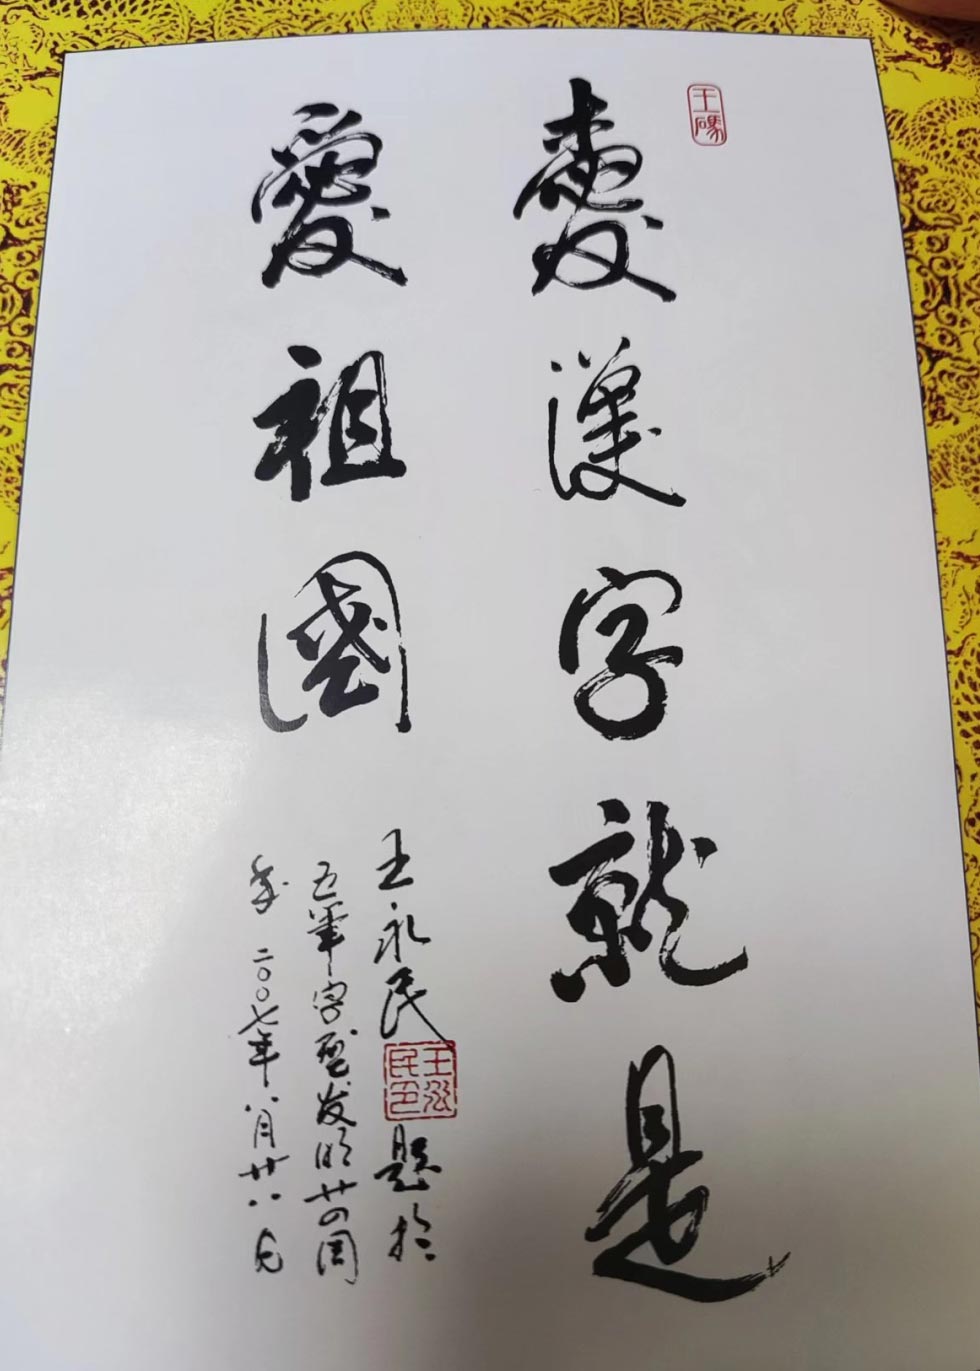 王碼
愛漢字就是
愛祖國
王永民
王永民印
题於
五筆字型发明廿四周
年 二〇〇七年八月廿八日